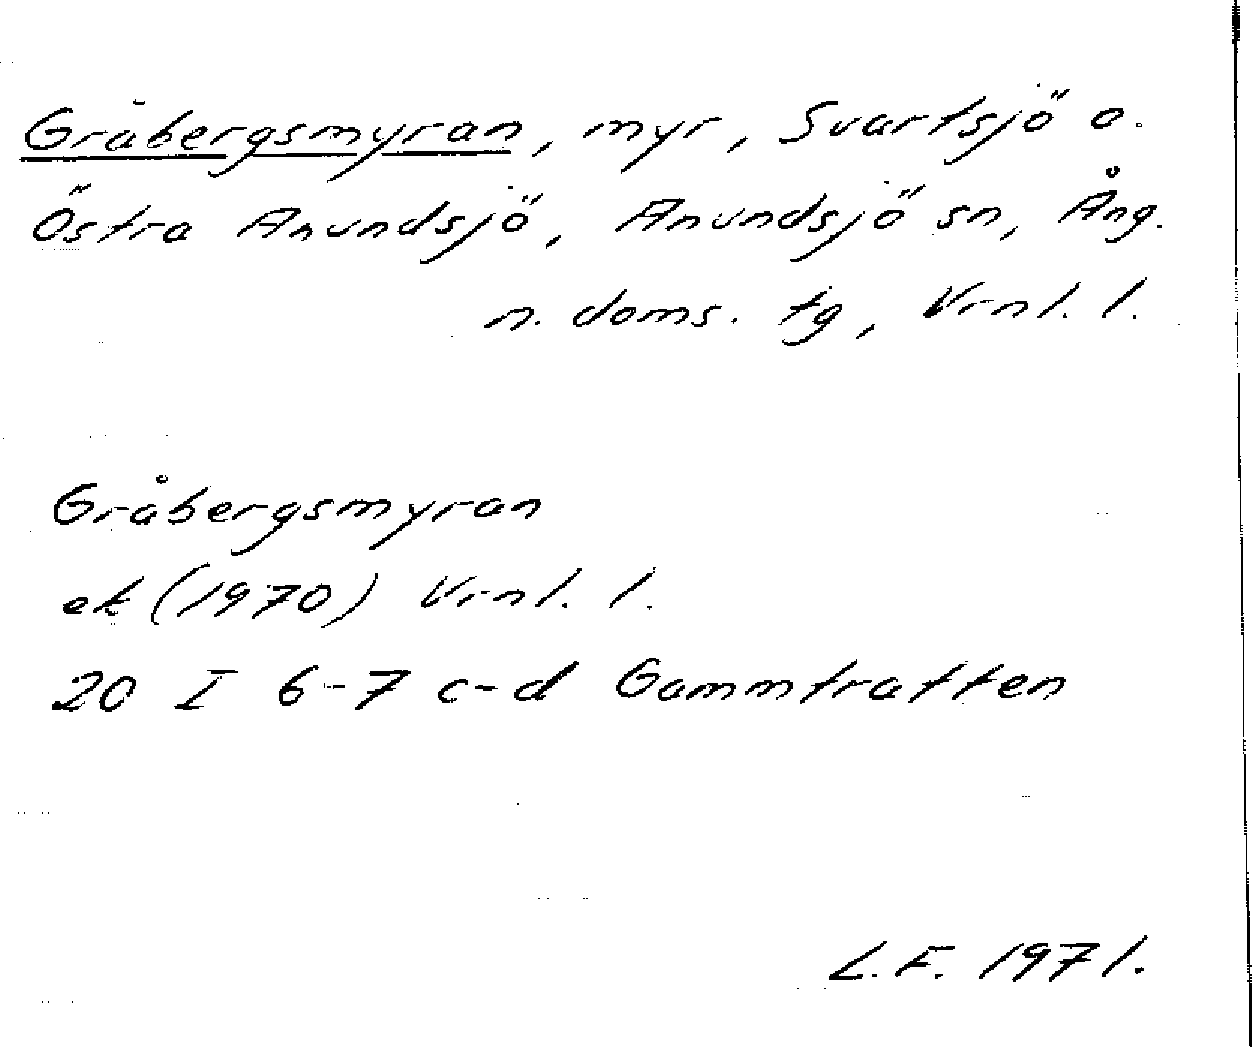 Gråbergsmyran, myr, Svartsjö o.
Östra Anundsjö, Anundsjö sn, Ång.
n. doms. tg, Vrnl. l.
Gråbergsmyran
ek (1970) Vrnl. l.
20 I 6-7 c-d Gammtratten
L.F. 1971.